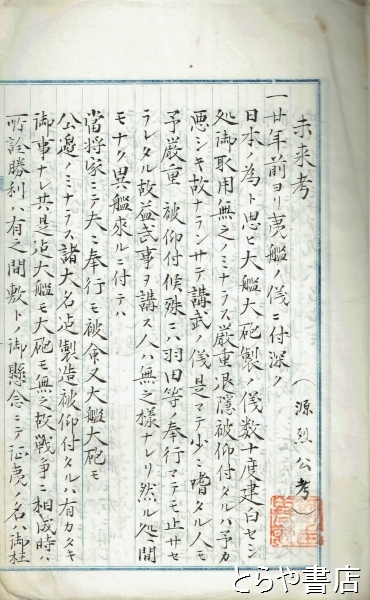 未来考
（源烈公考）
一廿年前ヨリ夷艦ノ儀ニ付深ク
日本ノ為ト思ヒ大艦大砲製ノ儀数十度建白セシ
処御取用ノ無之ノミナラス厳重退隠被仰付タルハ予カ
悪シキ故ナランサテ講武ノ儀是マテ少ミ嗜タル人モ
予厳重被仰付候殊ニハ羽田等ノ奉行マテモ止サセ
ラレタル故益武事ヲ講ス人ハ無之様ナレリ然ル処ニ間
モナク異艦来ルニ付テハ
當将家ニテ夫ミ奉行モ被命又大艦大砲モ
公邊ノミナラス諸大名迠製造被仰付タルハ有カタキ
御事ナレ共是迠大艦モ大砲モ無之故戦争ニ相成時ハ
所詮勝利ハ有之間敷トノ御懸念ニテ征夷ノ名ハ御柱
とらや書店